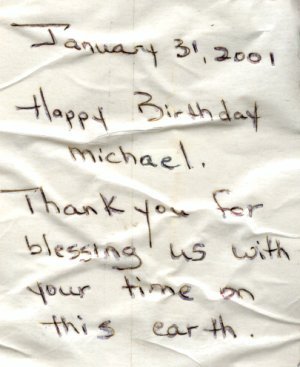 January 31, 2001
Happy Birthday
Michael.
Thank you for
blessing us with
your time on
this earth.